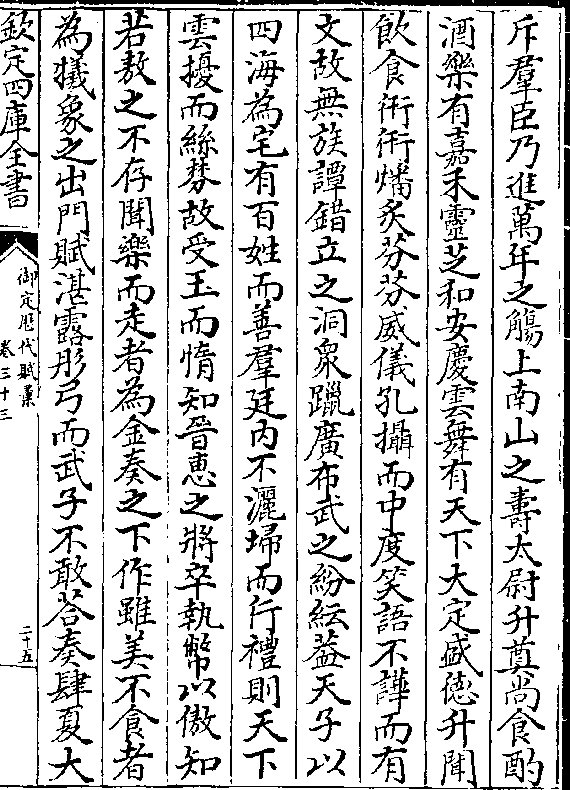 斥羣臣乃進萬年之觴上南山之壽太尉升奠尚食酌
酒樂有嘉禾靈芝和安慶雲舞有天下大定盛德升聞
飲食衎衎燔炙芬芬威儀孔攝而中度笑語不譁而有
文故無族譚錯立之洞衆躐廣布武之紛紜葢天子以
四海為宅有百姓而善羣廷内不灑埽而行禮則天下
雲擾而絲棼故受玉而惰知晉惠之將卒執幣以傲知
若敖之不存聞樂而走者為金奏之下作雖美不食者
為犧象之出門賦湛露彤弓而武子不敢荅奏肆夏大
欽定四庫全書
御定歴代賦彚
卷三十三
二十五